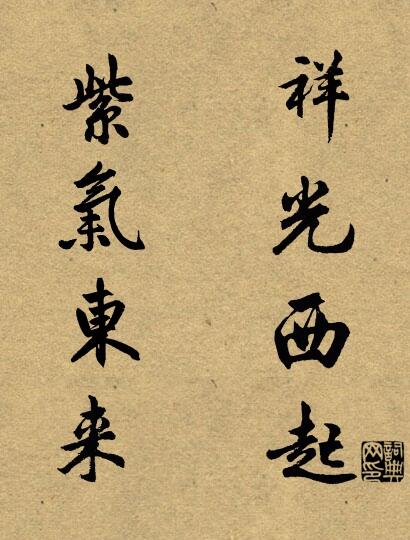 祥光西起
紫氣東来
詞典网印